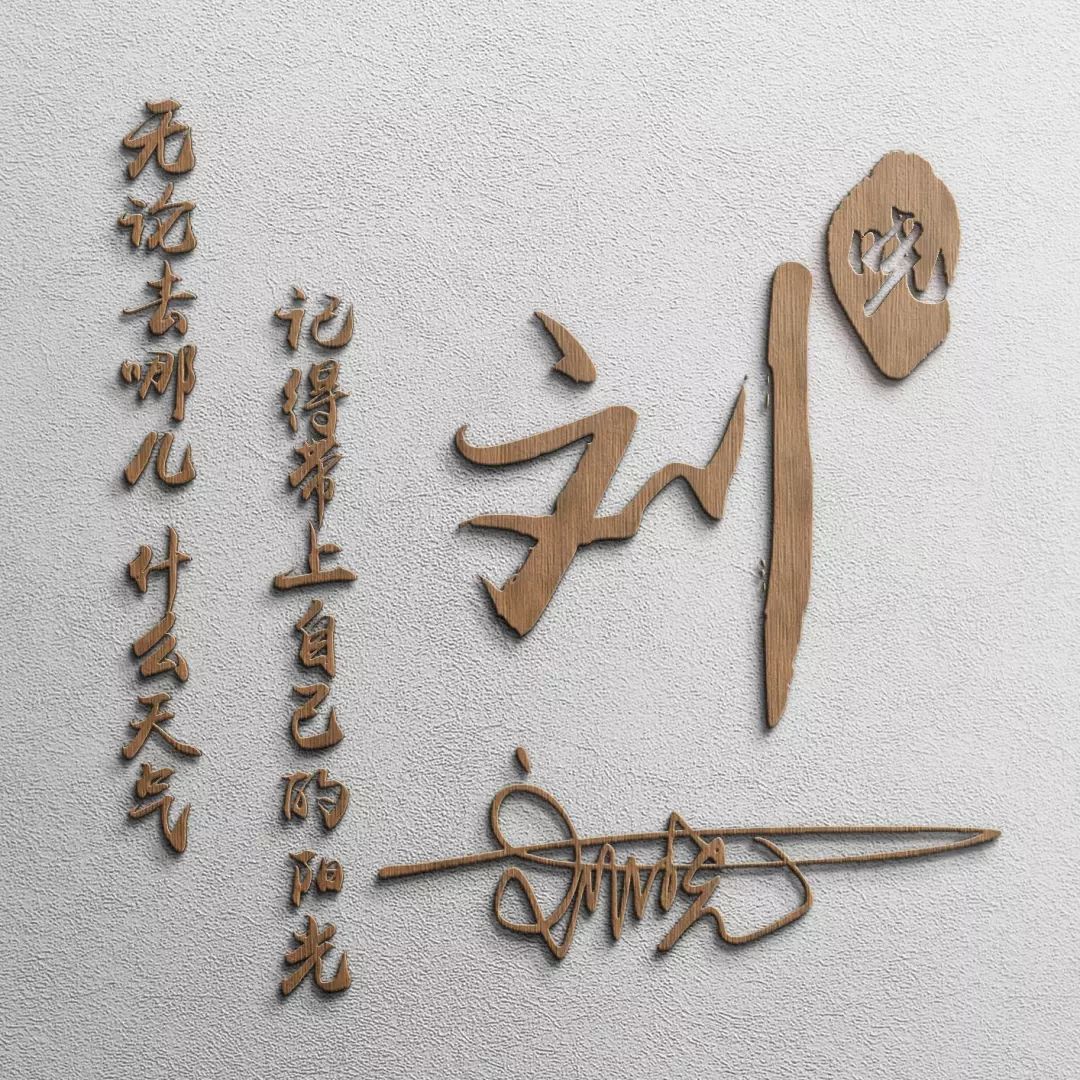 无论去哪儿 什么天气
记得带上自己的阳光
刘
晓